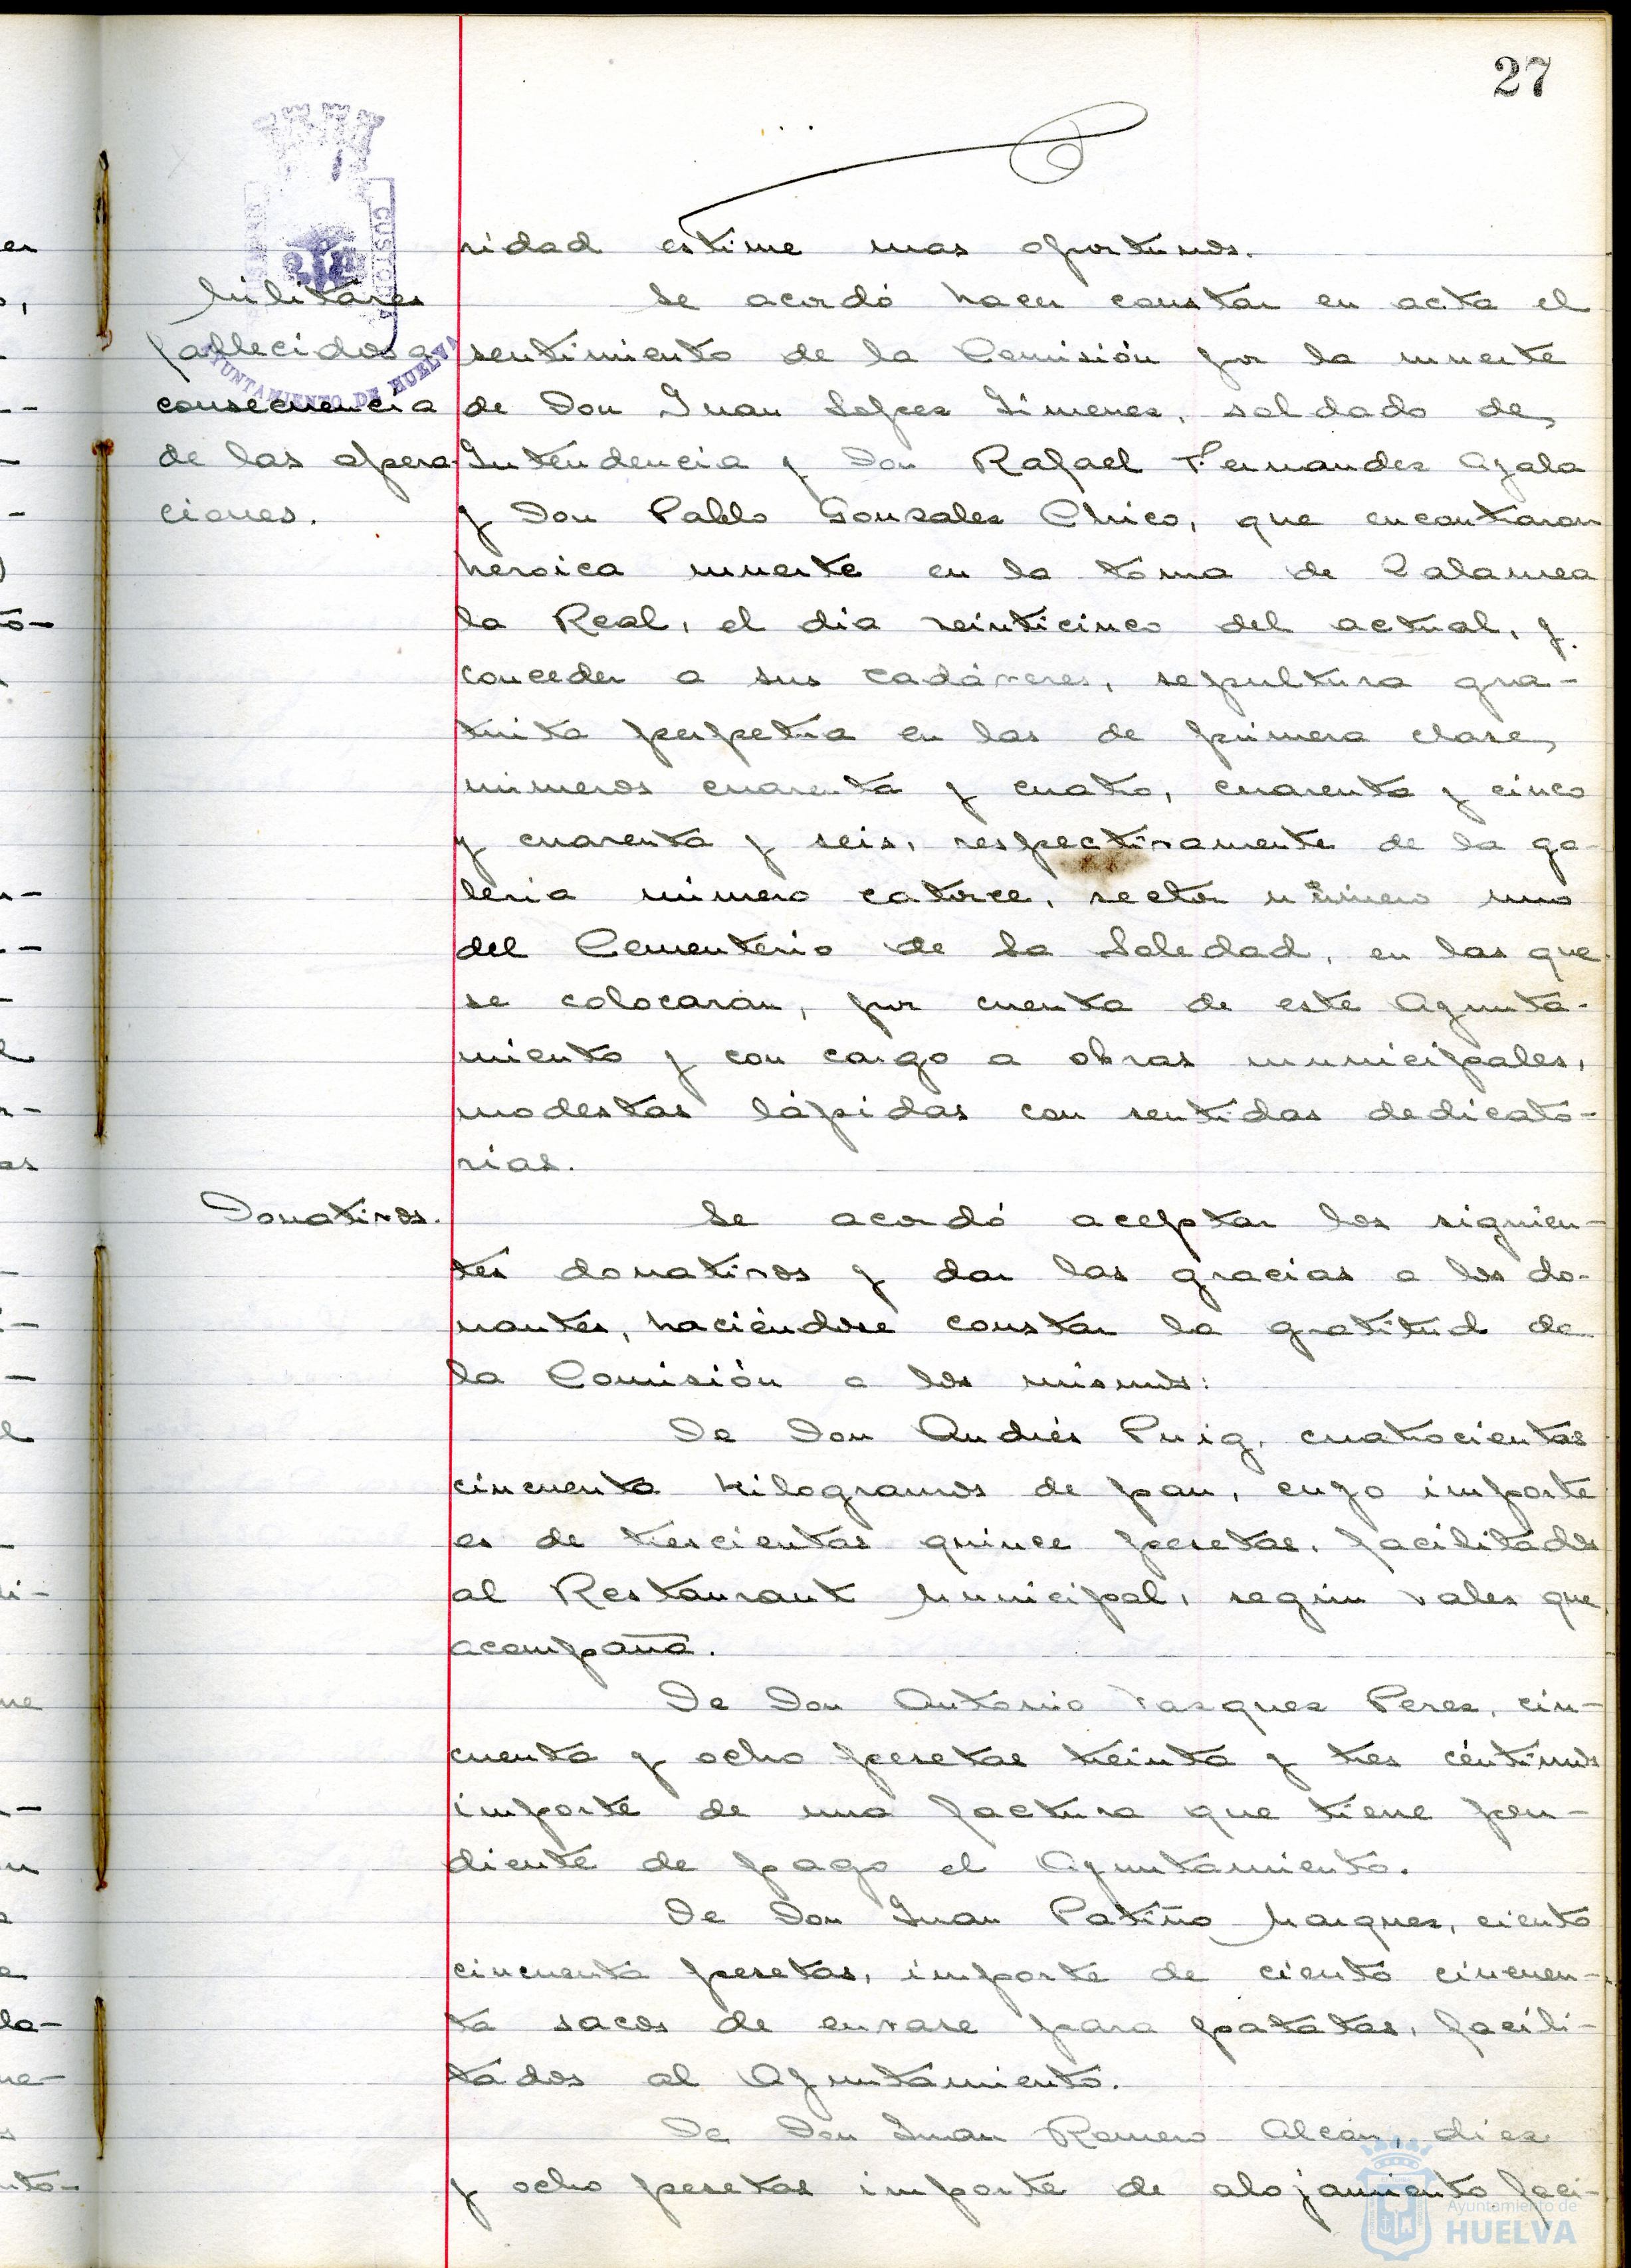 27
ridad estime mas oportunos.
Militares
fallecidos a
consecuencia
de las opera
ciones.
Se acordó hacer constar en acta el
sentimiento de la Comisión por la muerte
de Don Juan Lopez Jimenez, soldado de
Intendencia y Don Rafael Fernandez Ayala
y Don Pablo Gonzalez Chico, que encontraron
heroica muerte en la toma de Zalamea
la Real, el dia veinticinco del actual, y
conceder a sus cadáveres, sepultura gra-
tuita perpetua en las de primera clase,
números cuarenta y cuatro, cuarenta y cinco
y cuarenta y seis, respectivamente de la ga-
leria número catorce, sector número uno
del Cementerio de La Soledad, en las que
se colocarán, por cuenta de este Ayunta-
miento y con cargo a obras municipales,
modestas lápidas con sentidas dedicato-
rias.
Donativos.
Se acordó aceptar los siguien-
tes donativos y dar las gracias a los do-
nantes, haciéndose constar la gratitud de
la Comisión a los mismos:
De Don Andrés Puig, cuatrocientas
cincuenta kilogramos de pan, cuyo importe
es de trescientas quince pesetas, facilitados
al Restaurant Municipal, según vales que
acompaña.
De Don Antonio Vazquez Perez, cin-
cuenta y ocho pesetas treinta y tres céntimos
importe de una factura que tiene pen-
diente de pago el Ayuntamiento.
De Don Juan Patiño Marquez, ciento
cincuenta pesetas, importe de ciento cincuen-
ta sacos de envase para patatas, facili-
tados al Ayuntamiento.
De Don Juan Romero Alcón, diez
y ocho pesetas importe de alojamiento faci-
CUSTODIA
AYUNTAMIENTO DE HUELVA
Ayuntamiento de
HUELVA